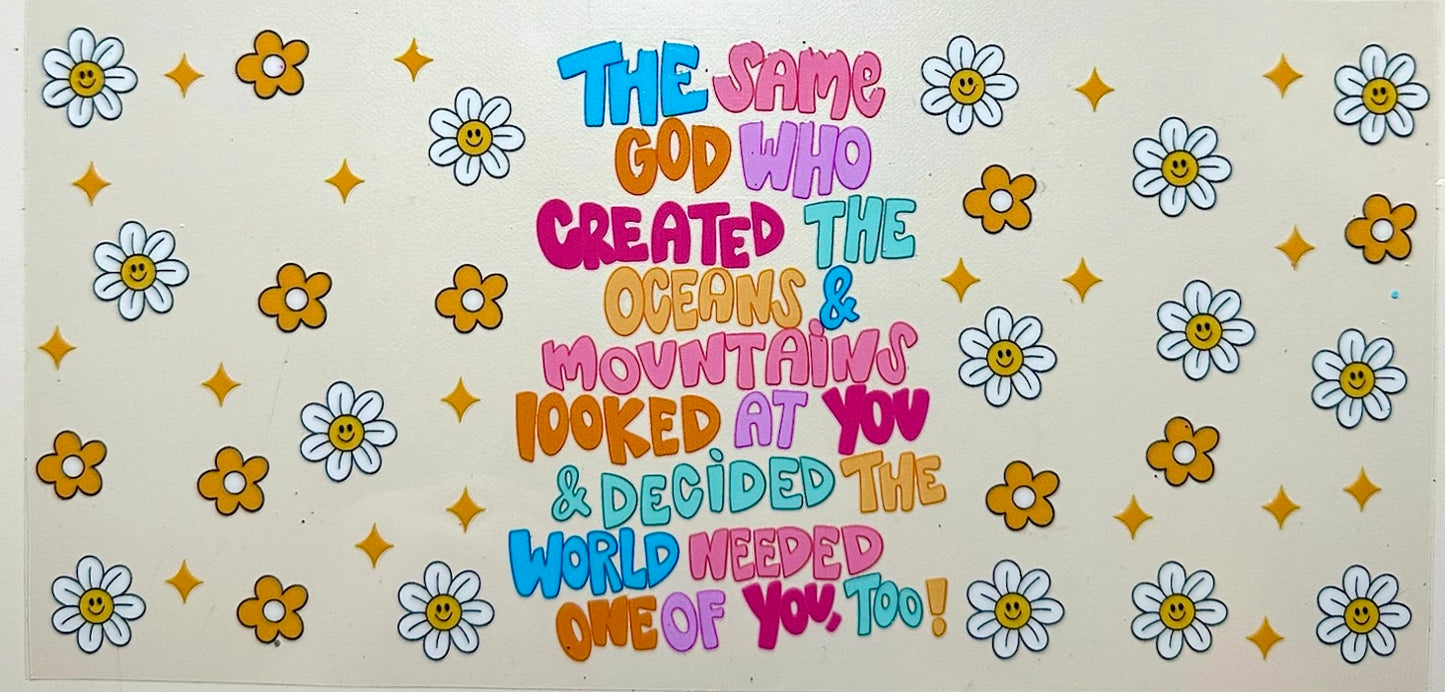 THE SAME
GOD WHO
CREATED THE
OCEANS &
MOUNTAINS
LOOKED AT YOU
& DECIDED THE
WORLD NEEDED
ONE OF YOU, TOO!